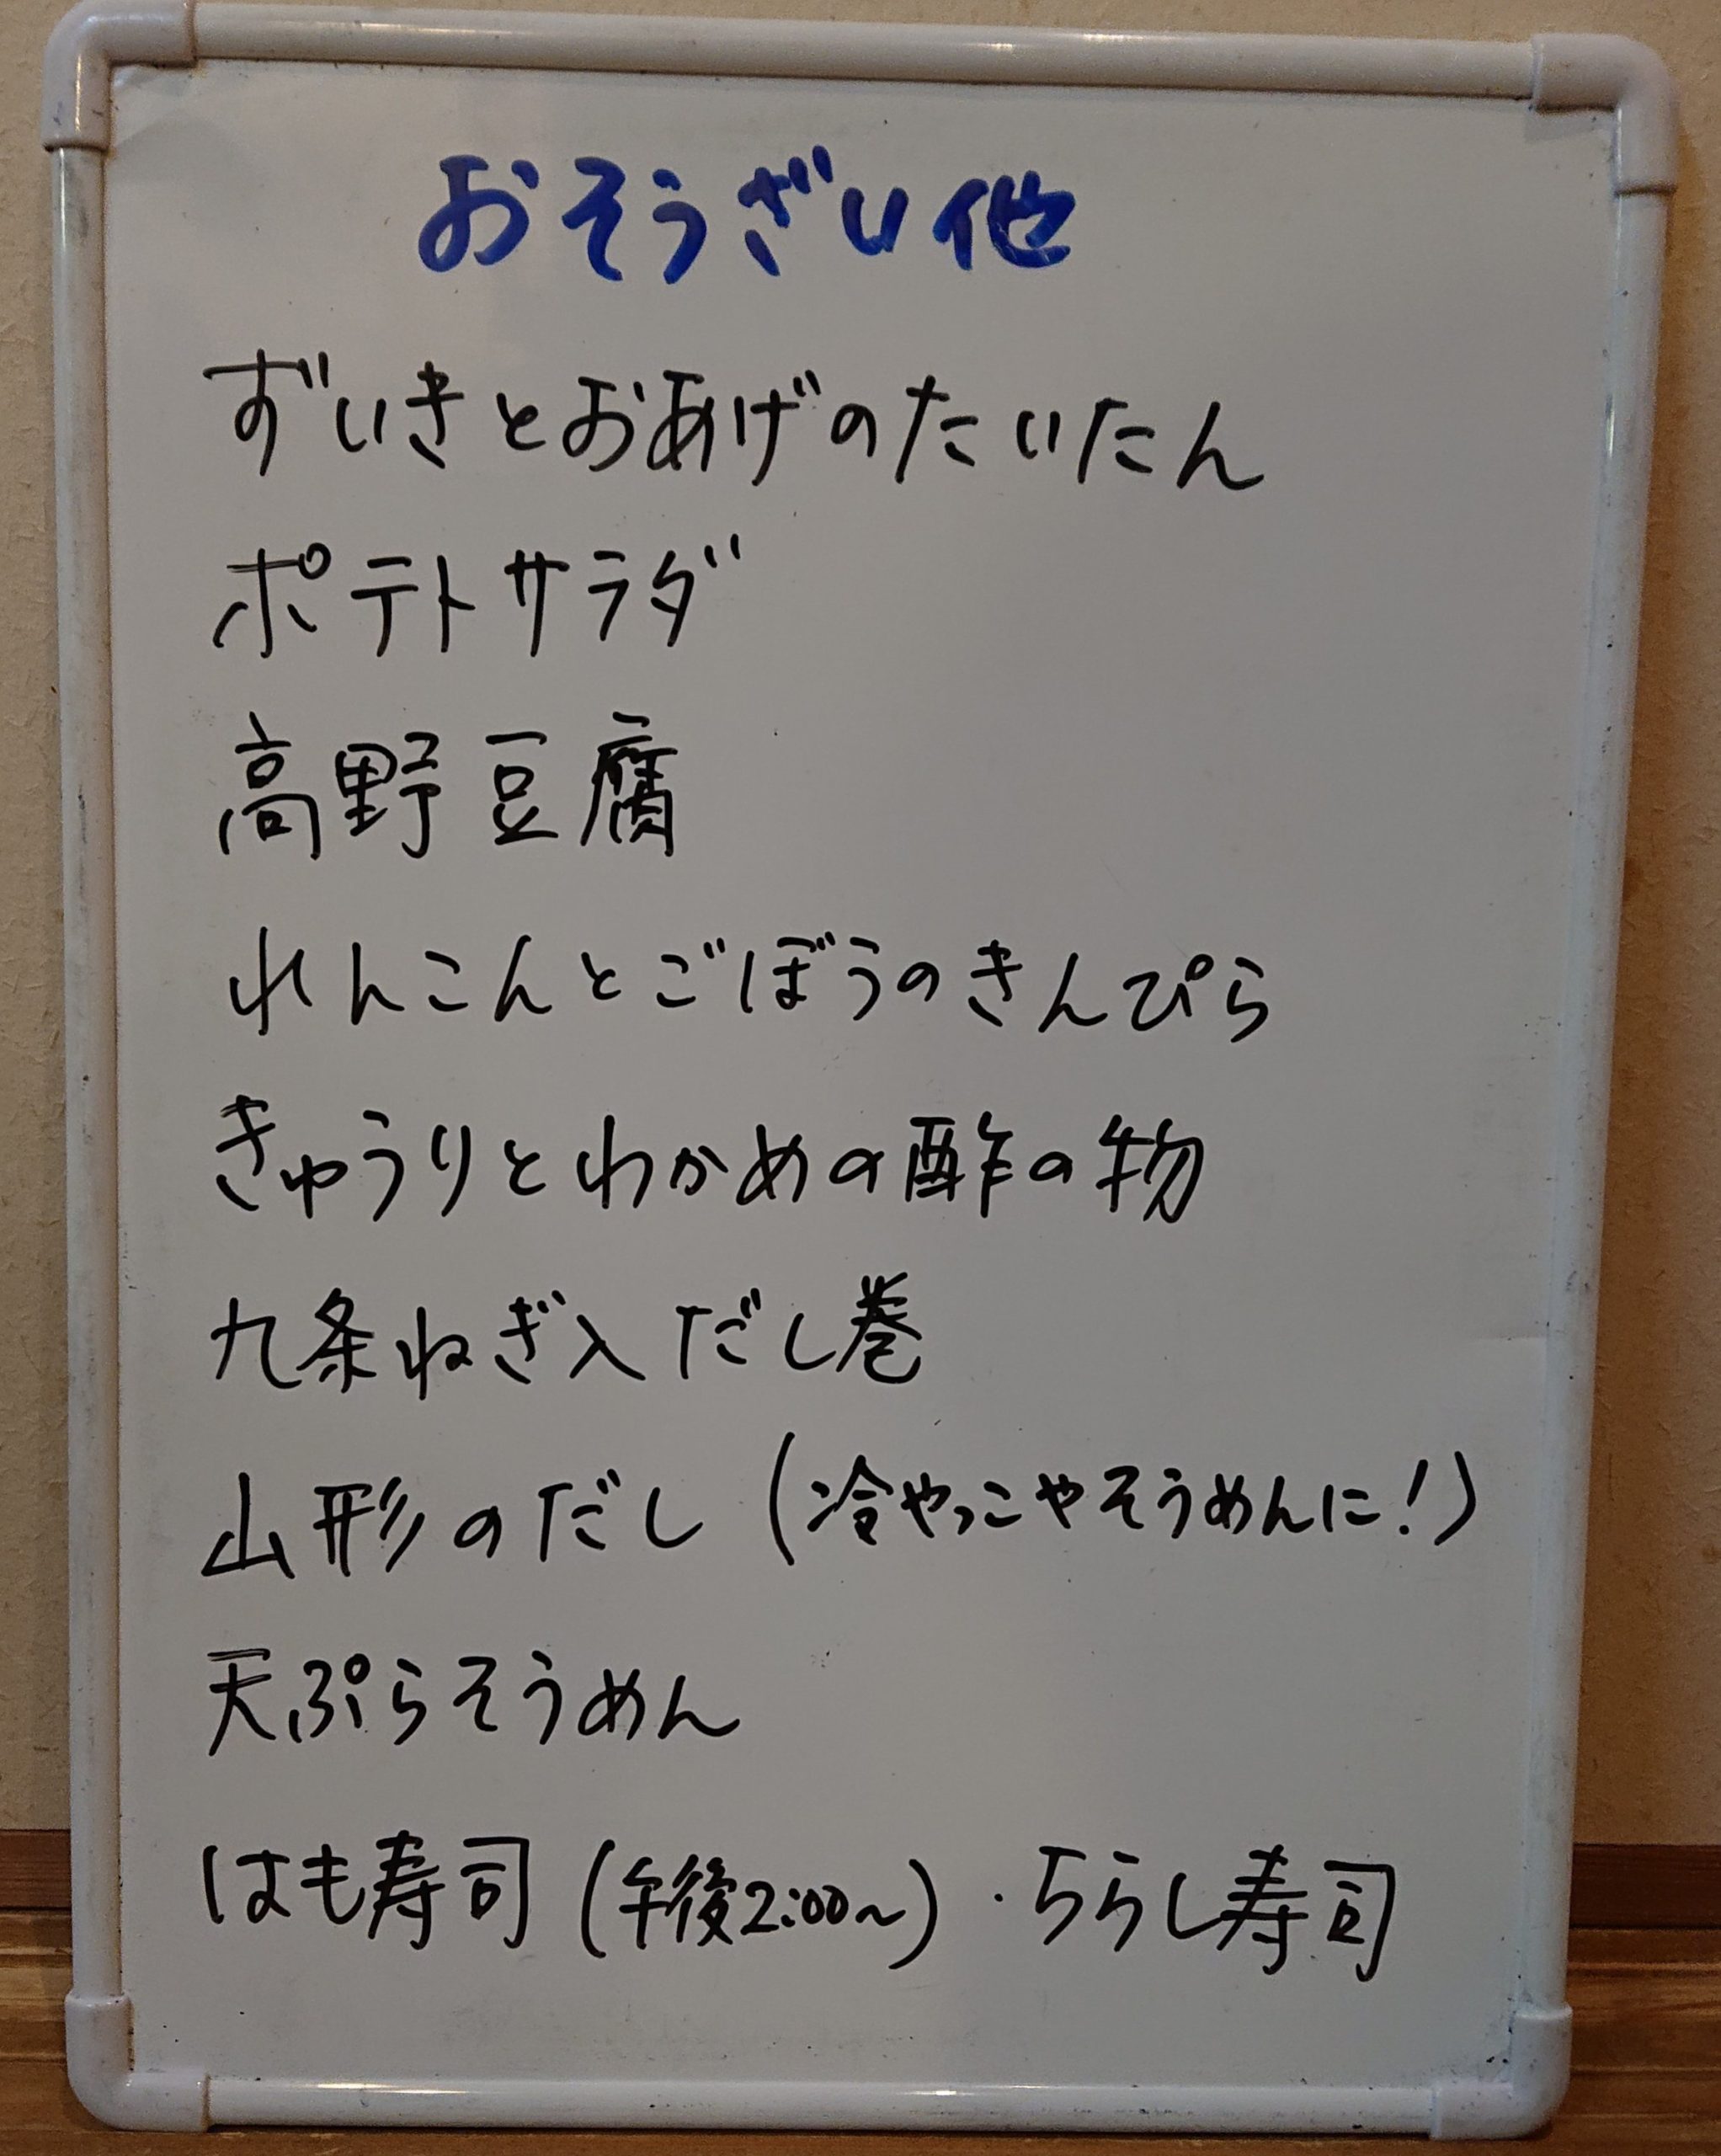 おそうざい他
ずいきとおあげのたいたん
ポテトサラダ
高野豆腐
れんこんとごぼうのきんぴら
きゅうりとわかめの酢の物
九条ねぎ入だし巻
山形のだし (冷やっこやそうめんに!)
天ぷらそうめん
はも寿司 (午後2:00~)・ちらし寿司